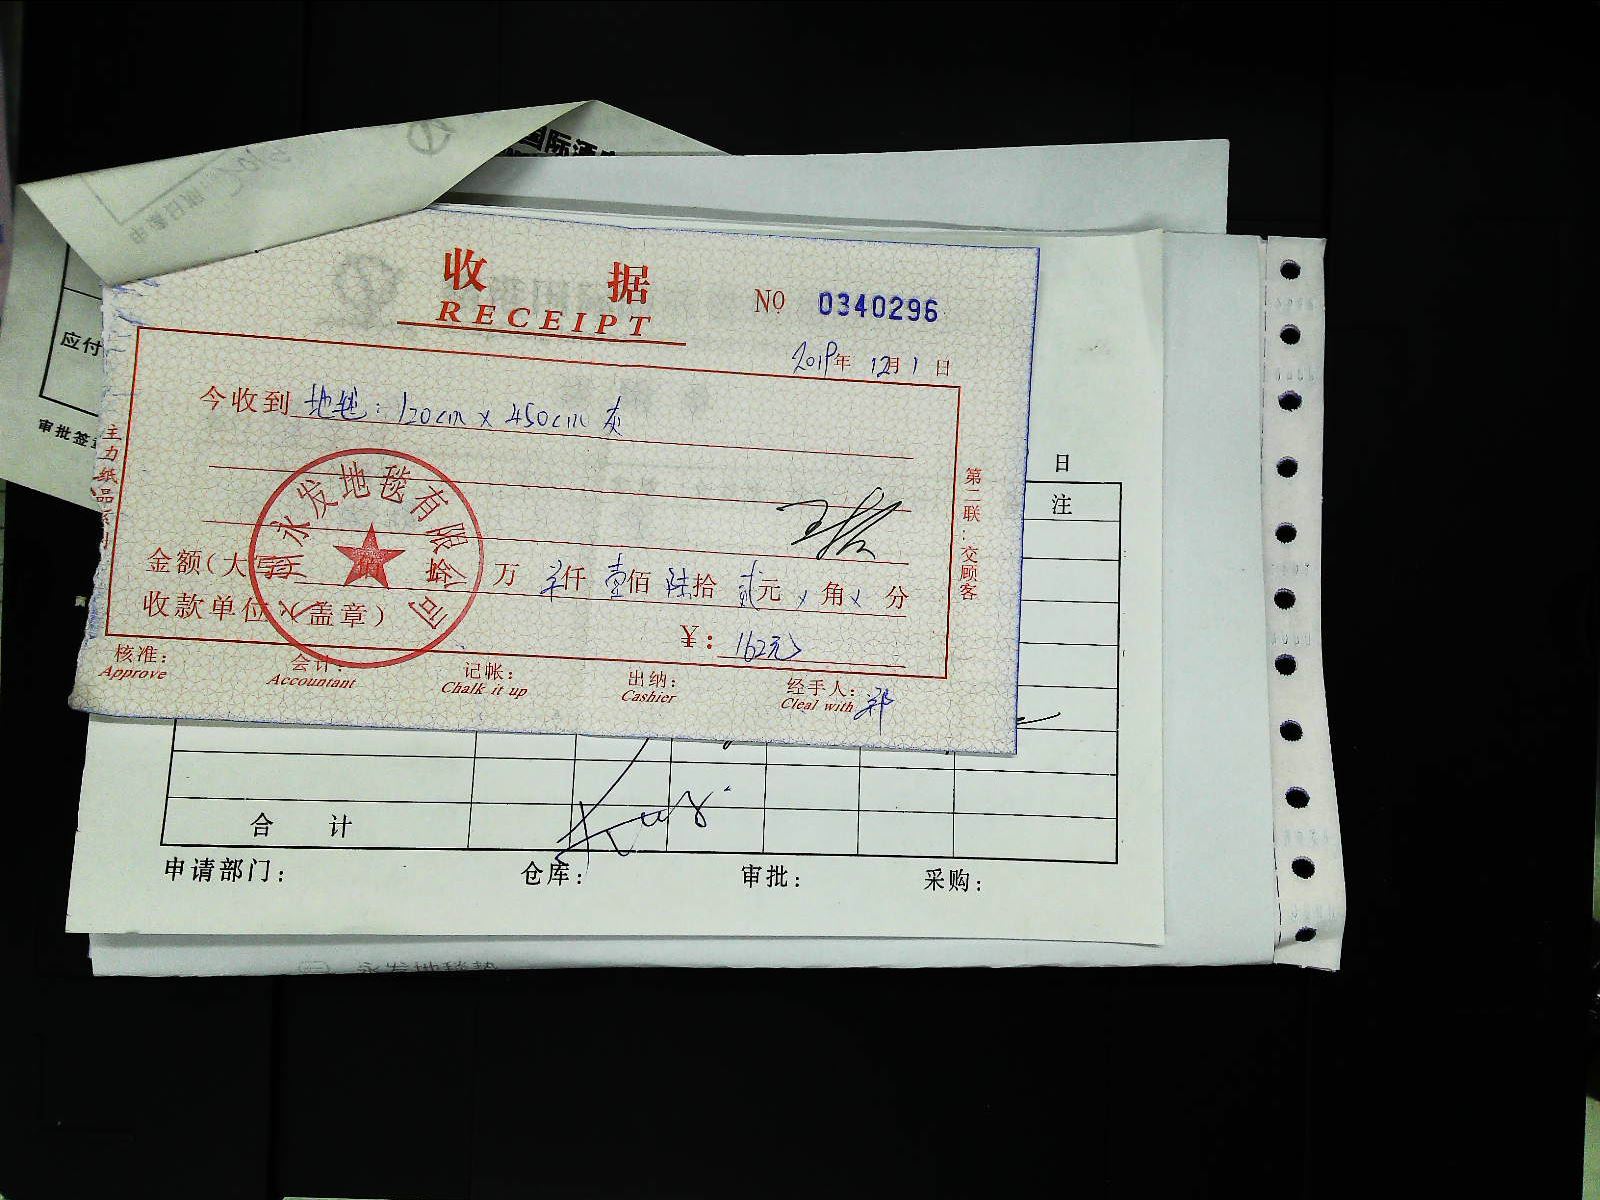 国际酒
应付
审批签
收 据
RECEIPT
NO 0340296
2019年 12月1日
今收到 地毯：120cm x 450cm 灰
永发地毯有限公司
金额(大写) 万 零仟 壹佰 陆拾 贰元 x 角 x 分
收款单位(盖章)
¥: 162元
核准: 会计: 记帐: 出纳: 经手人: 郑
Approve Accountant Chalk it up Cashier Cleal with
第二联:交顾客
主力纸品系列
日
注
合 计
申请部门: 仓库: 审批: 采购:
永发地毯垫